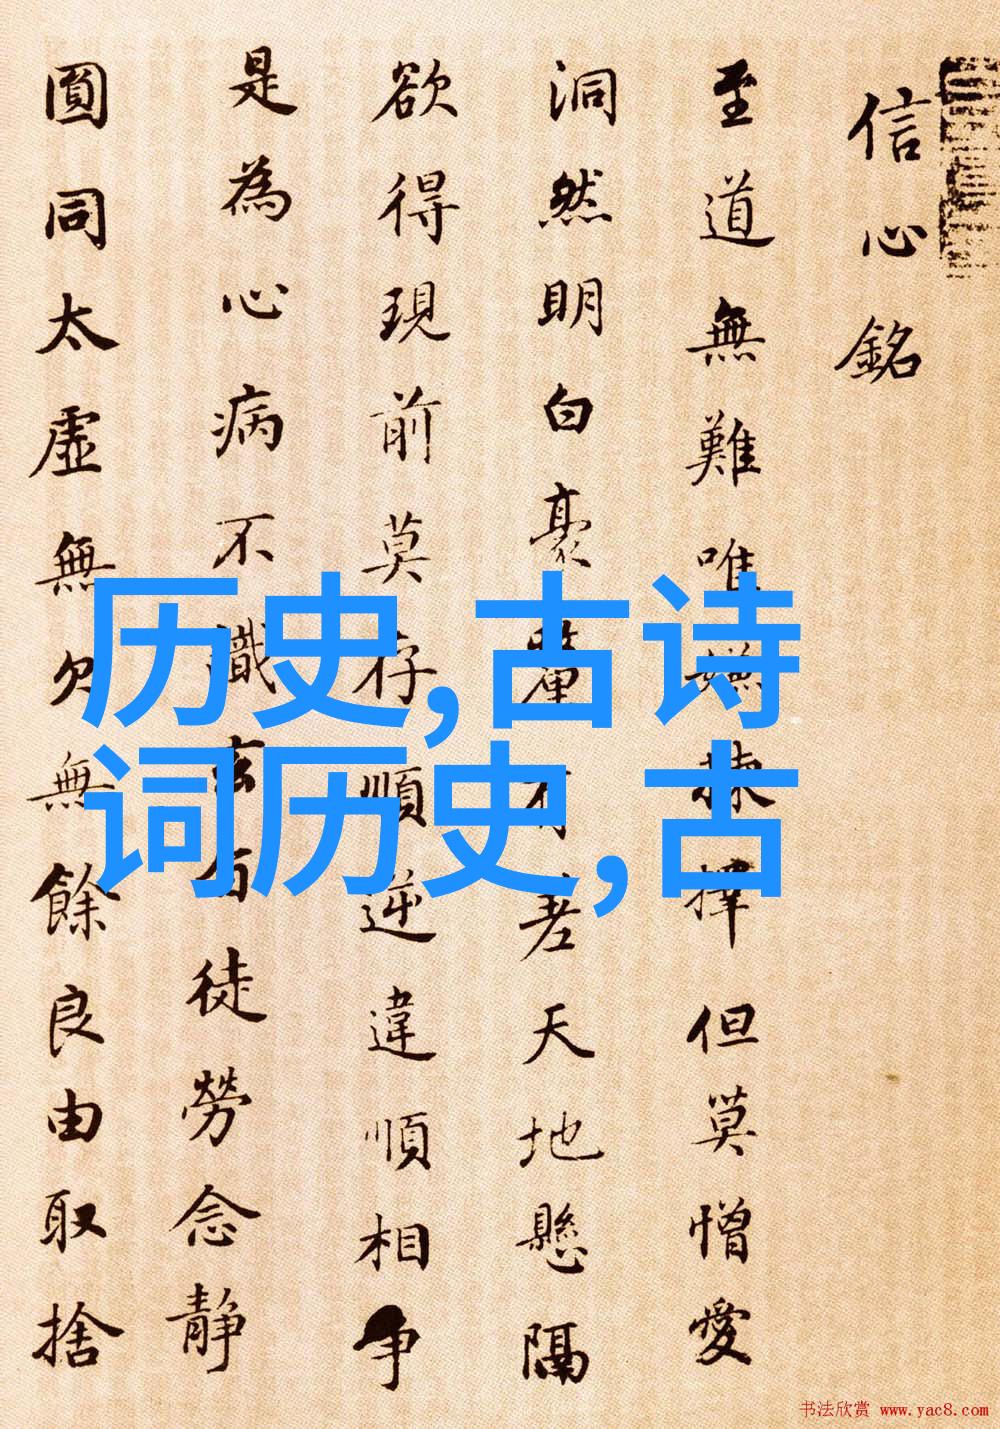 信心銘
至道無難唯嫌揀擇但莫憎愛
洞然明白豪釐有差天地懸隔
欲得現前莫存順逆違順相争
是為心病不識玄旨徒勞念静
圓同太虚無欠無餘良由取捨
历史,古诗
词历史,古
书法欣赏 www.yac8.com